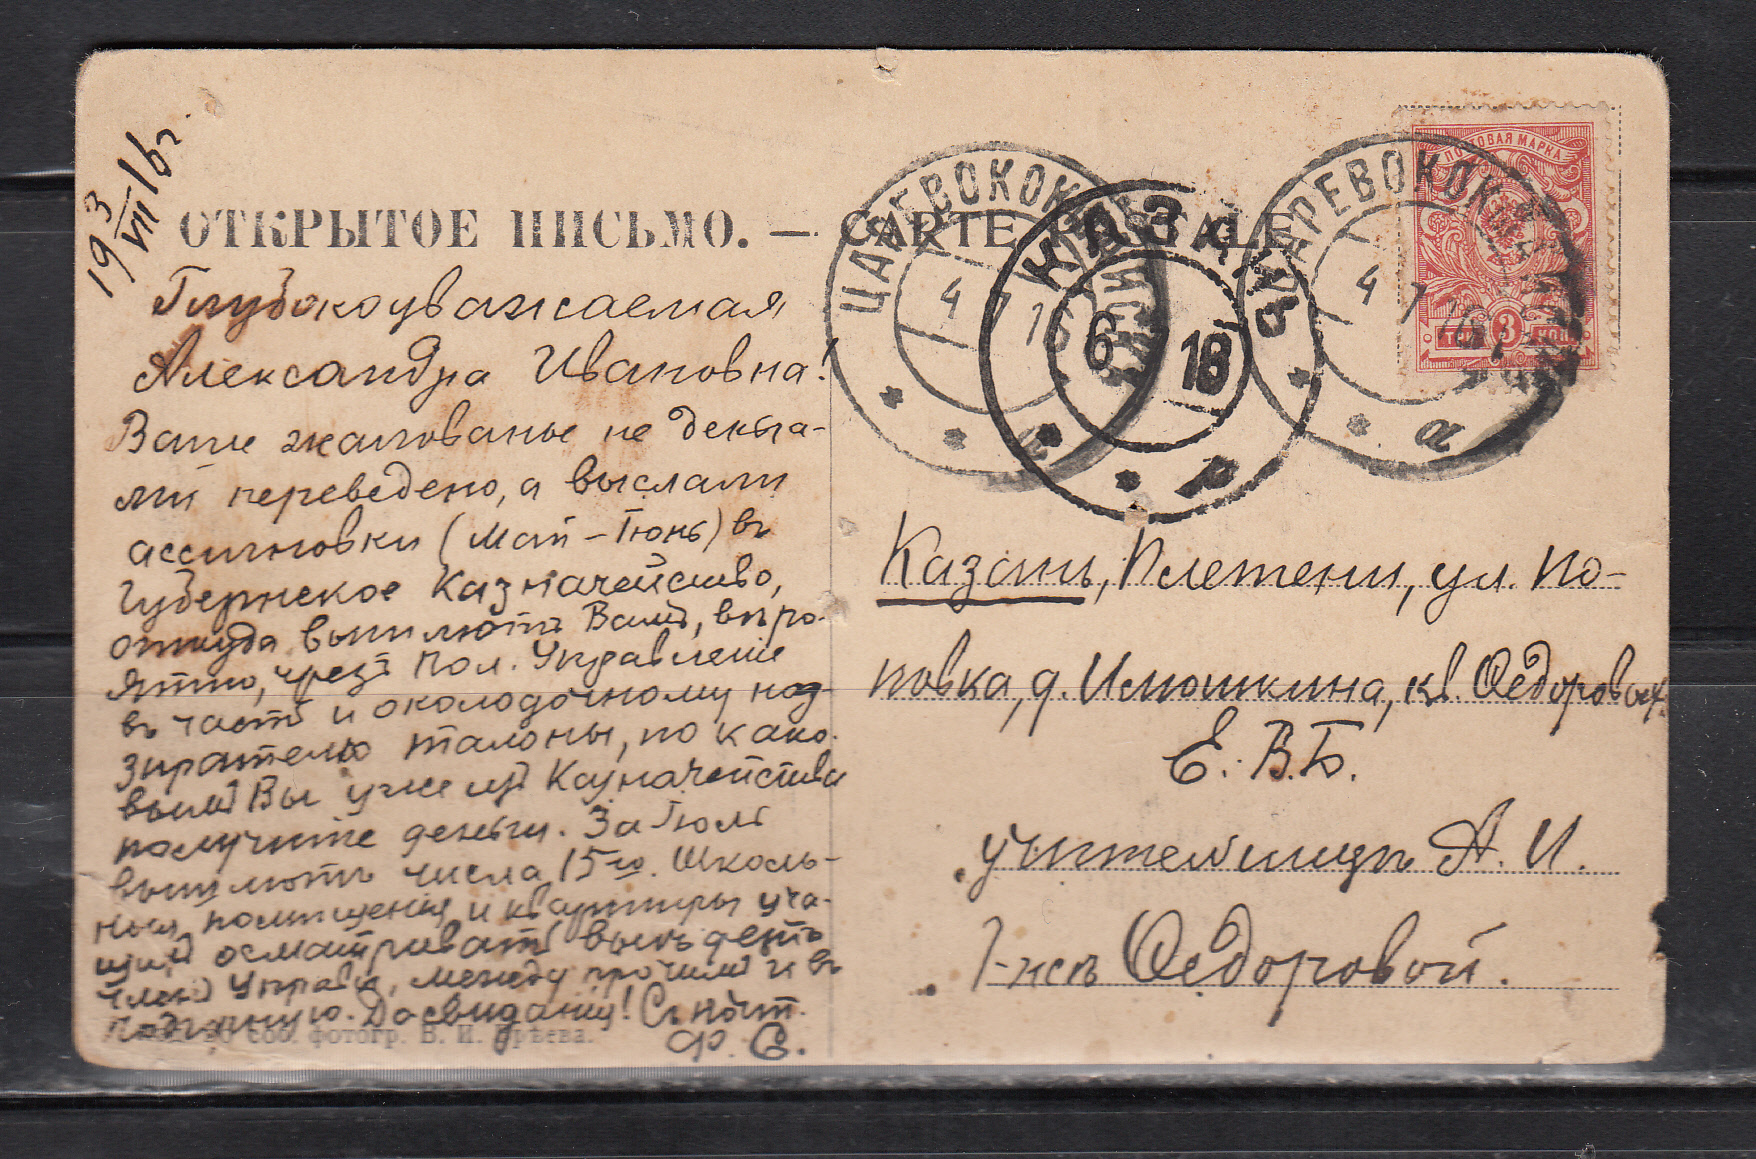 19 3/VII 16 г.
ОТКРЫТОЕ ПИСЬМО. — CARTE POSTALE
Глубокоуважаемая
Александра Ивановна!
Ваше жалованье не деньга-
ми переведено, а выслали
ассигновки (Май – Іюнь) въ
Губернское Казначейство,
откуда вышлютъ Вамъ, вѣро-
ятно, чрезъ Пол. Управление
въ часть и околодочному над-
зирателю талоны, по како-
вымъ Вы уже изъ Казначейства
получите деньги. За Іюль
вышлютъ числа 15го. Школь-
ныя помещенія и квартиры уча-
щихъ осматривать выедетъ
членъ Управы, между прочимъ и въ
До свиданія! Съ почт.
Ф. С.
соб. фотогр. В. И. Брѣева.
ЦАРЕВОКОКШ
4 7 16
КАЗАНЬ
6 16
ЦАРЕВОКОКШ
4 7 16
а
ПОЧТОВАЯ МАРКА
ТРИ 3 КОП
Казань, Плетени, ул. По-
повка, д. Илюшкина, кв. Федоровых
Е. В. Б.
учительницѣ А. И.
Г-жѣ Федоровой.